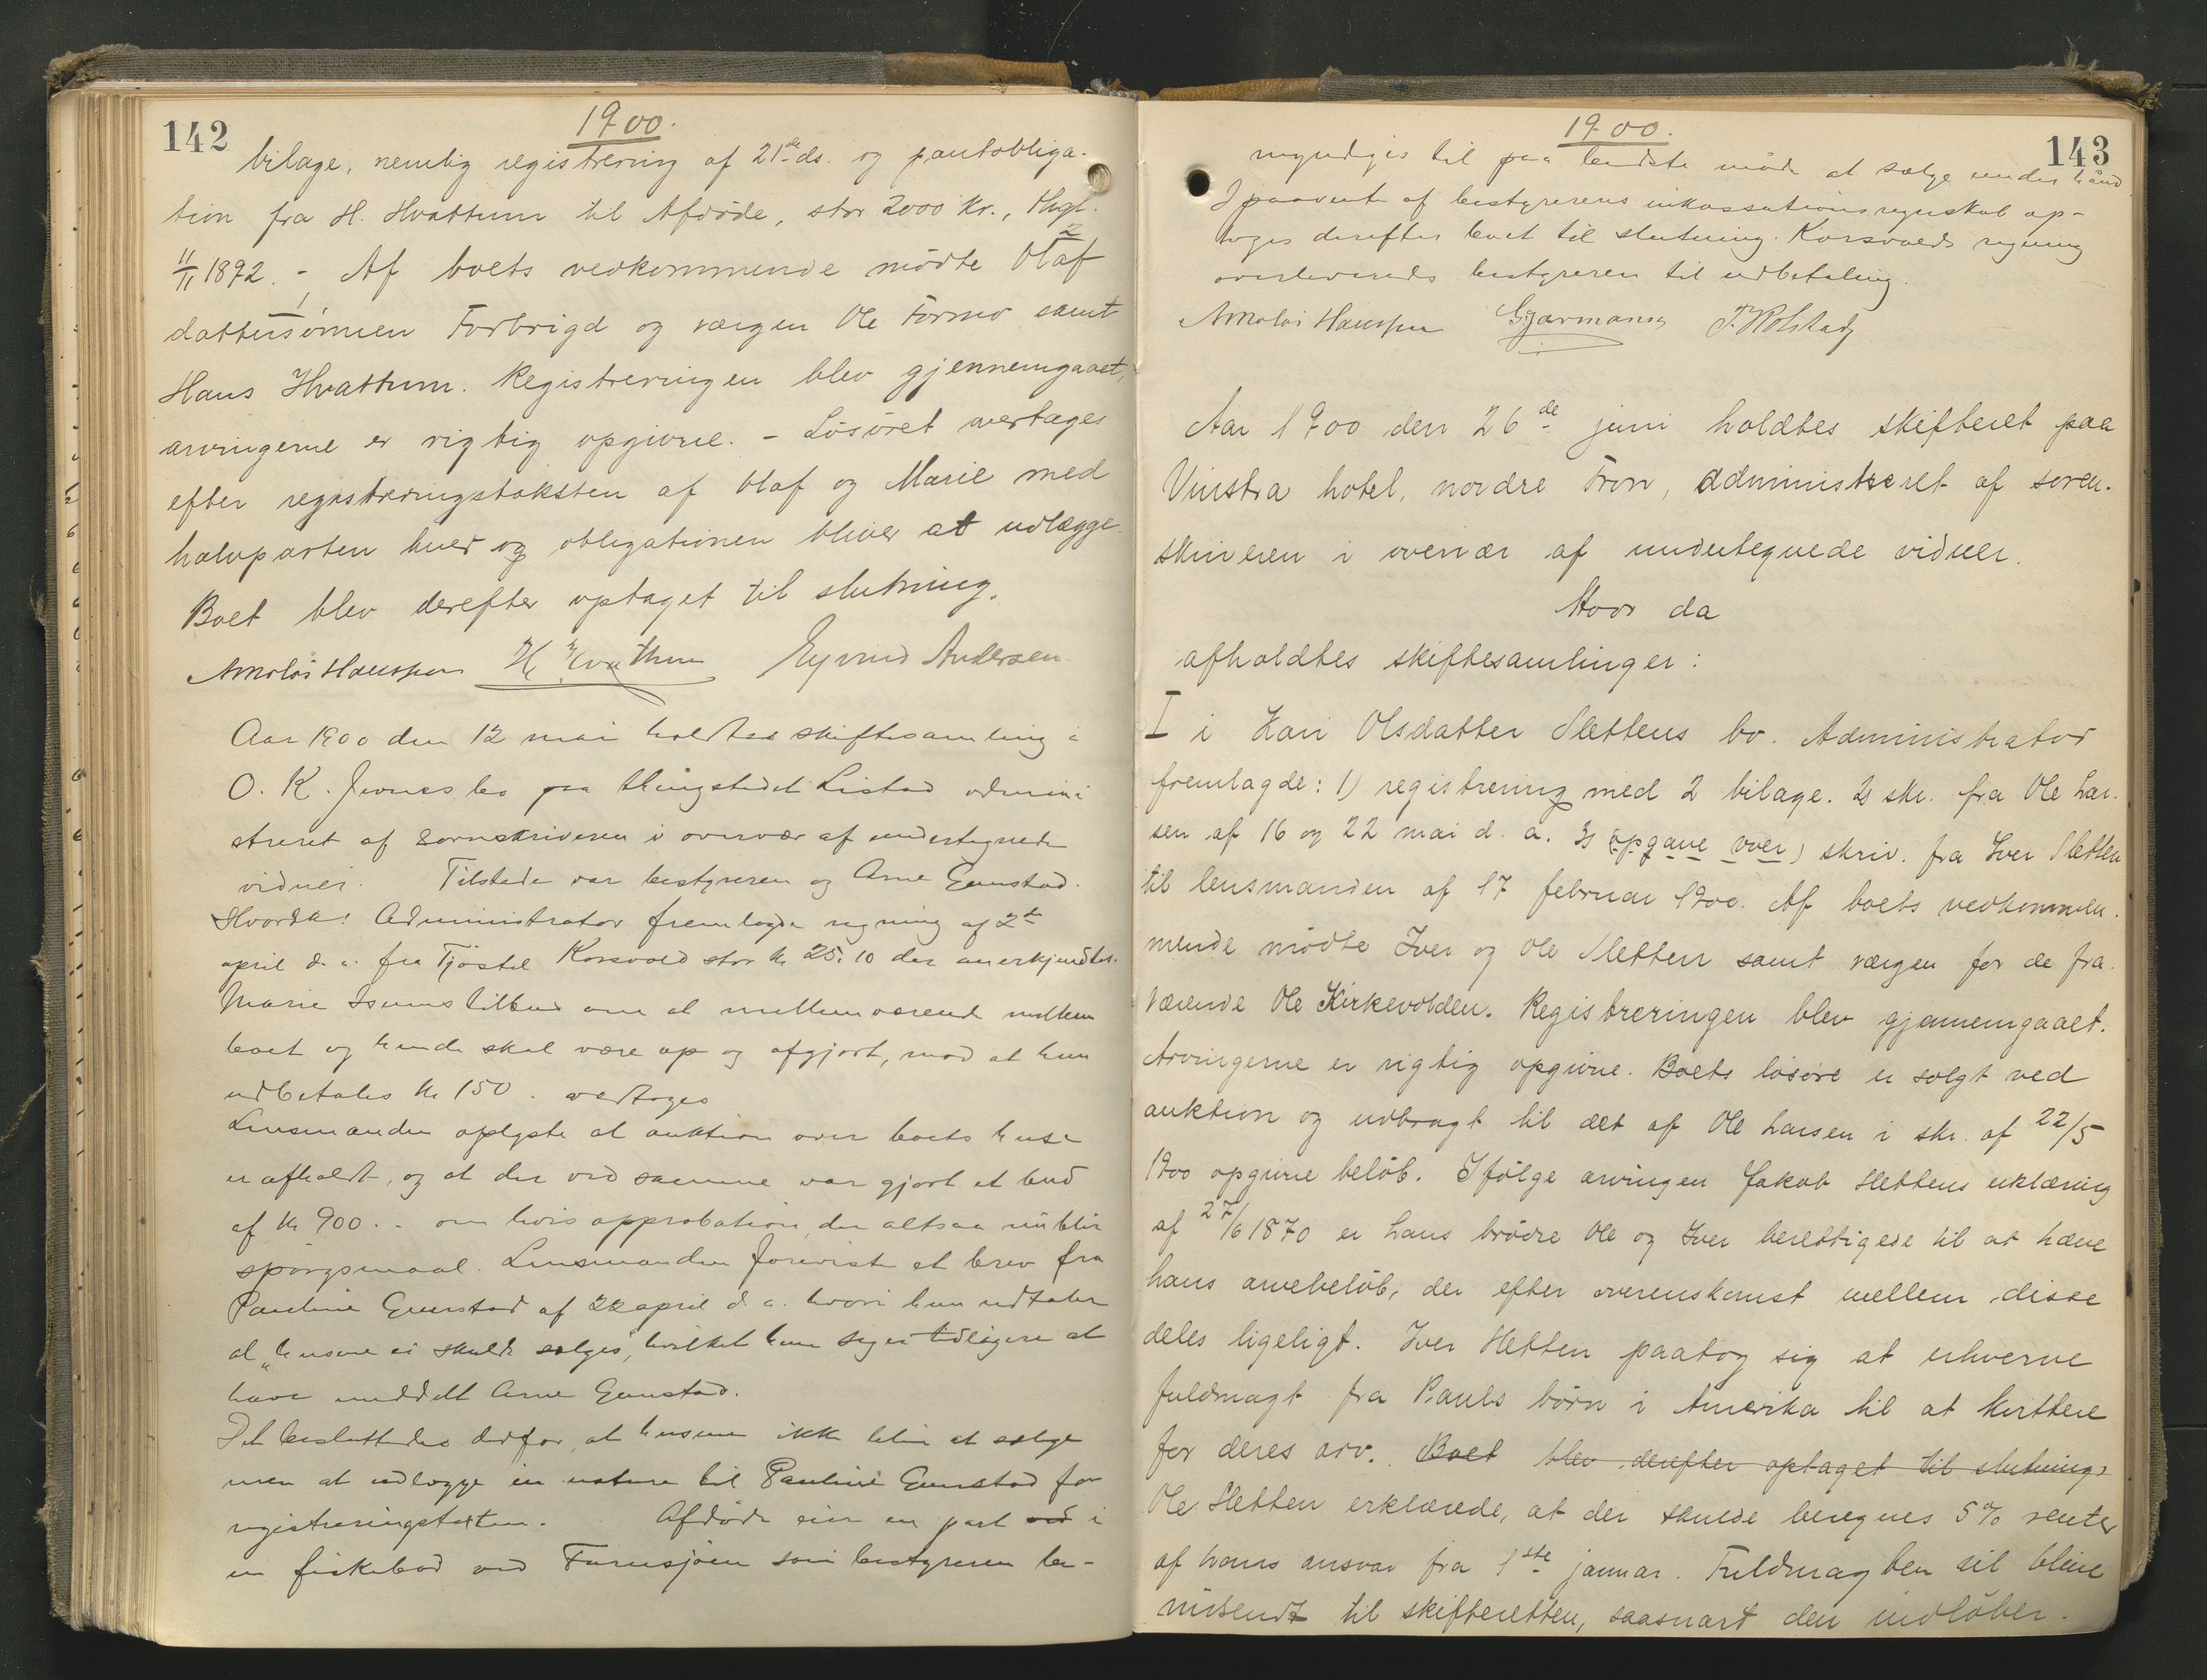 142
1900.
bilage, nemlig registrering af 21de ds. og pantobliga-
tion fra H. Hvattum til Afdøde, stor 2000 kr., thgl.
11/11 1892. - Af boets vedkommende mødte Olaf
dattersønnen Forbrigd og værgen Ole Formo samt
Hans Hvattum. Registreringen blev gjennemgaaet,
arvingerne er rigtig opgivne. - Løsøret overtages
efter registreringstaksten af Olaf og Marie med
halvparten hver og obligationen bliver at udlægge.
Boet blev derefter optaget til slutning.
H Hvattum Eyvind Andersen.
Aar 1900 den 12 mai holdtes skiftesamling i
O. K. bo paa thingstedet Listad admini
streret af sorenskriveren i overvær af undertegnede
vidner. Tilstede var bestyreren og Arne Enerstad.
Hvorda: Administrator fremlagde regning af 2de
april d. a. fra Tjøstel Korsvold stor kr 25,10 der anerkjendtes.
Marie Isums tilbud om at mellemværende mellem
boet og hende skal være op og afgjort, mod at hun
udbetales kr 150. vedtoges
Lensmanden oplyste at auktion over boets huse
er afholdt, og at der ved samme var gjort et bud
af kr 900.- om hvis approbation der altsaa nu blir
spørgsmaal. Lensmanden foreviste et brev fra
Pauline Enerstad af 22 april d. a. hvori hun udtaler
at "husene ei skulde selges", hvilket hun siger tidligere at
have meddelt Arne Enerstad.
Det besluttedes derfor, at husene ikke blir at selge
men at udlægge in natura til Pauline Enerstad for
registreringstaxten. Afdøde eier en part ved i
en fiskebod ved Furusjøen som bestyreren be-
1900.
143
myndiges til paa bedste måde at sælge under hånd.
I paavente af bestyrerens inkassationsregnskab op-
toges derefter boet til slutning. Korsvolds regning
overleveredes bestyreren til udbetaling.
Gjarmann T. Kolstad
Aar 1900 den 26de juni holdtes skifteret paa
Vinstra hotel, nordre Fron, administreret af soren-
skriveren i overvær af undertegnede vidner.
Hvor da
afholdtes skiftesamlinger:
I i Kari Olsdatter Slettens bo. Administrator
fremlagde: 1) registrering med 2 bilage. 2) skr. fra Ole Lar-
sen af 16 og 22 mai d. a. 3) (opgave over) skriv. fra Iver Sletten
til lensmanden af 17 februar 1900. Af boets vedkommen-
mende mødte Iver og Ole Sletten samt værgen for de fra-
værende Ole Kirkevolden. Registreringen blev gjennemgaaet.
Arvingerne er rigtig opgivne. Boets løsøre er solgt ved
auktion og udbragt til det af Ole Larsen i skr. af 22/5
1900 opgivne beløb. Ifølge arvingen Jakob Slettens erklæring
af 27/6 1870 er hans brødre Ole og Iver berettigede til at hæve
hans arvebeløb, der efter overenskomst mellem disse
deles ligeligt. Iver Sletten paatog sig at erhverve
fuldmagt fra Pauls børn i Amerika til at kvittere
for deres arv. Boet blev derefter optaget til slutning.
Ole Sletten erklærede, at der skulde beregnes 5% renter
af hans ansvar fra 1ste januar. Fuldmagten vil blive
indsendt til skifteretten, saasnart den indløber.